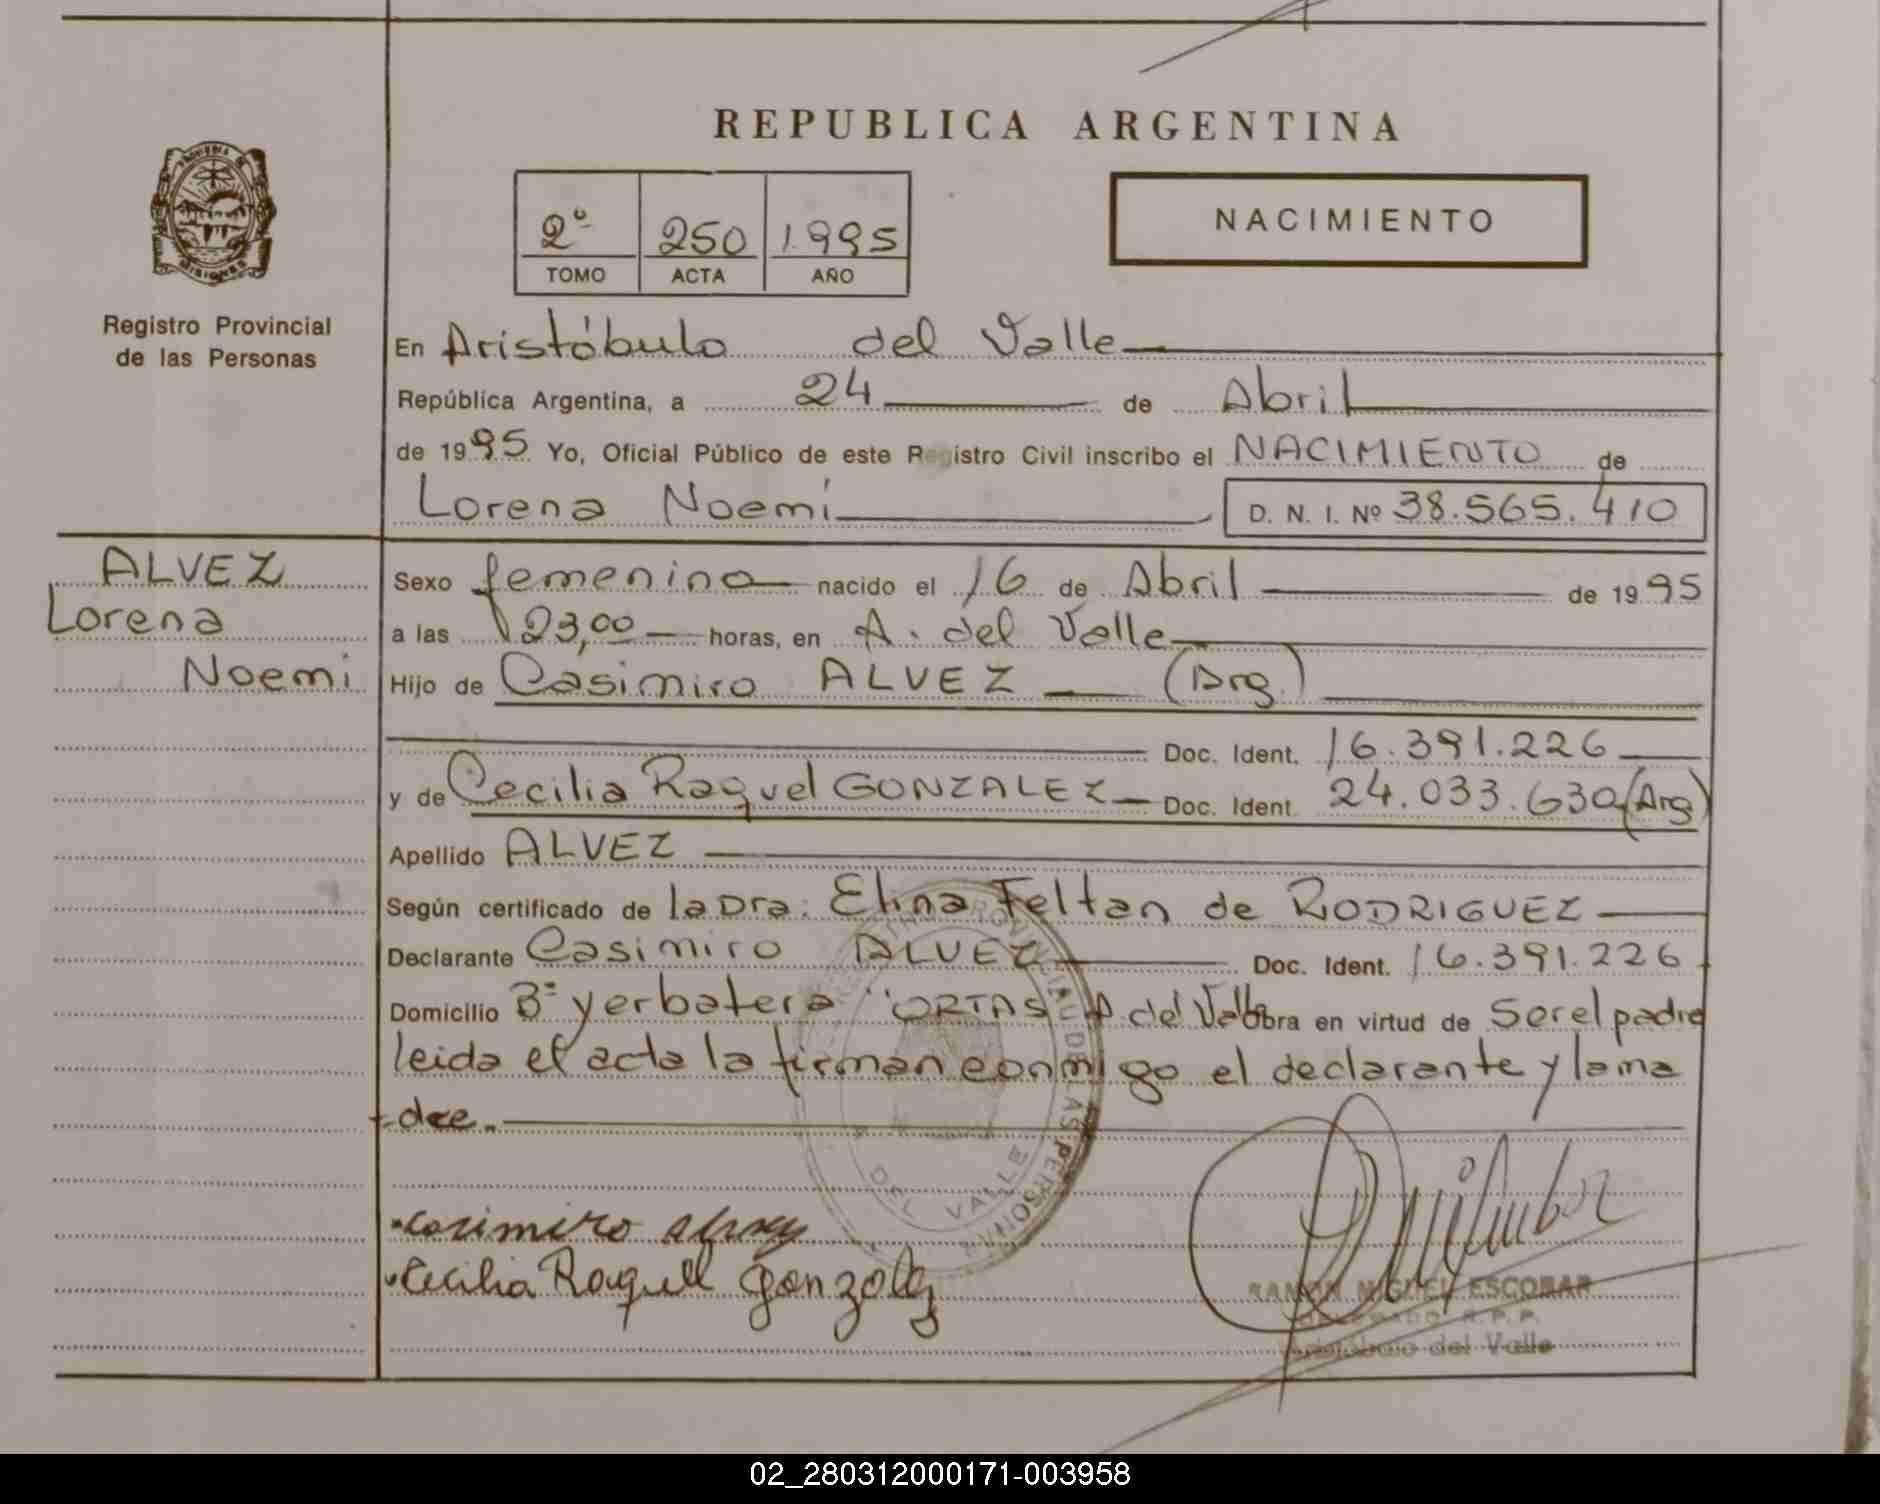 REPUBLICA ARGENTINA
PROVINCIA DE
MISIONES
Registro Provincial
de las Personas
2º 250 1995
TOMO ACTA AÑO
NACIMIENTO
En Aristóbulo del Valle
República Argentina, a 24 de Abril
de 1995 Yo, Oficial Público de este Registro Civil inscribo el NACIMIENTO de
Lorena Noemí D. N. I. Nº 38.565.410
ALVEZ
Lorena
Noemi
Sexo femenino nacido el 16 de Abril de 1995
a las 23,00 horas, en A. del Valle
Hijo de Casimiro ALVEZ (Arg.)
Doc. Ident. 16.391.226
y de Cecilia Raquel GONZALEZ Doc. Ident. 24.033.630 (Arg)
Apellido ALVEZ
Según certificado de la Dra: Elina Feltan de RODRIGUEZ
Declarante Casimiro ALVEZ Doc. Ident. 16.391.226
Domicilio Bº yerbatera "ORTAS A. del Valle Obra en virtud de Ser el padre
leida el acta la firman conmigo el declarante y la ma
=dre.
REGISTRO PROVINCIAL DE LAS PERSONAS
DEL VALLE
Casimiro Alvez
Cecilia Raquel Gonzalez
RAMON MIGUEL ESCOBAR
DELEGADO R.P.P.
Aristóbulo del Valle
02_280312000171-003958